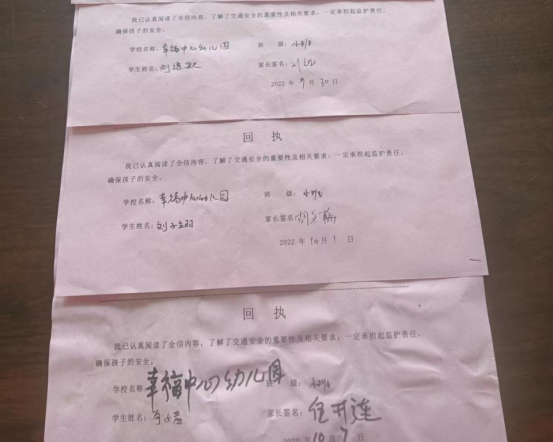 我已认真阅读了全信内容，了解了交通安全的重要性及相关要求，一定承担起监护责任，
确保孩子的安全。
学校名称：幸福中心幼儿园 班 级：
学生姓名：刘 家长签名：
2022 年 9 月 30 日
回 执
我已认真阅读了全信内容，了解了交通安全的重要性及相关要求，一定承担起监护责任，
确保孩子的安全。
学校名称：幸福中心幼儿园 班 级：
学生姓名：刘子 家长签名
2022 10 月 1 日
回 执
我已认真阅读了全信内容，了解了交通安全的重要性及相关要求，一定承担起监护责任，
确保孩子的安全。
学校名称 幸福中心幼儿园 级：
学生姓名： 家长签名： 任开连
2022 10 月